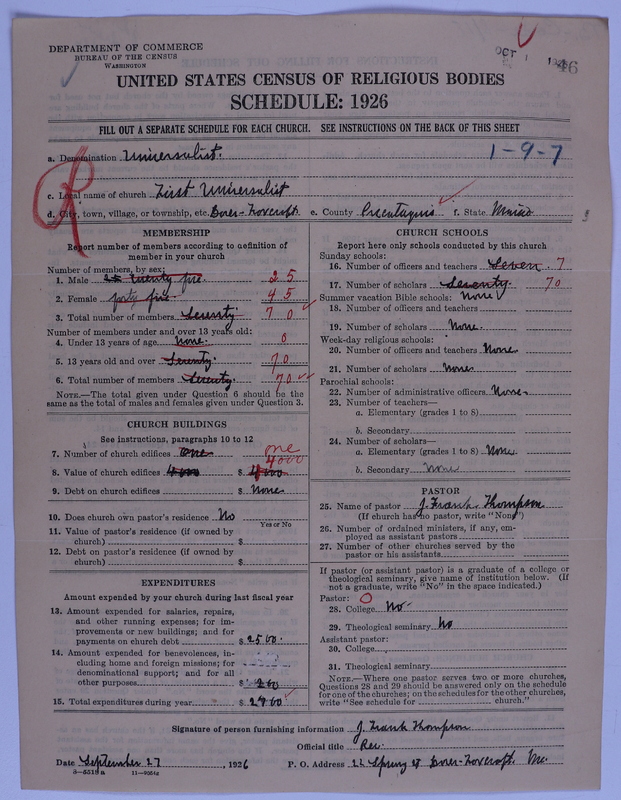 DEPARTMENT OF COMMERCE
BUREAU OF THE CENSUS
WASHINGTON
OCT
46
UNITED STATES CENSUS OF RELIGIOUS BODIES
SCHEDULE: 1926
FILL OUT A SEPARATE SCHEDULE FOR EACH CHURCH. SEE INSTRUCTIONS ON THE BACK OF THIS SHEET
a. Denomination Universalist. 1-9-7
R
c. Local name of church First Universalist
d. City, town, village, or township, etc. Dover-Foxcroft e. County Piscataquis f. State Maine
MEMBERSHIP
Report number of members according to definition of
member in your church
Number of members, by sex:
1. Male 25 twenty five 25
2. Female forty five 45
3. Total number of members Seventy 70
Number of members under and over 13 years old:
4. Under 13 years of age none. 0
5. 13 years old and over Seventy. 70
6. Total number of members Seventy. 70
NOTE.—The total given under Question 6 should be the
same as the total of males and females given under Question 3.
CHURCH BUILDINGS
See instructions, paragraphs 10 to 12
7. Number of church edifices one one
8. Value of church edifices 4000 $ 4000 4000
9. Debt on church edifices $ None
10. Does church own pastor's residence No
Yes or No
11. Value of pastor's residence (if owned by
church) $
12. Debt on pastor's residence (if owned by
church) $
EXPENDITURES
Amount expended by your church during last fiscal year
13. Amount expended for salaries, repairs,
and other running expenses; for im-
provements or new buildings; and for
payments on church debt $ 2500.
14. Amount expended for benevolences, in-
cluding home and foreign missions; for
denominational support; and for all
other purposes $ 260
15. Total expenditures during year $
CHURCH SCHOOLS
Report here only schools conducted by this church
Sunday schools:
16. Number of officers and teachers Seven. 7
17. Number of scholars Seventy. 70
Summer vacation Bible schools: None
18. Number of officers and teachers
19. Number of scholars None.
Week-day religious schools:
20. Number of officers and teachers None
21. Number of scholars None.
Parochial schools:
22. Number of administrative officers None
23. Number of teachers—
a. Elementary (grades 1 to 8)
b. Secondary
24. Number of scholars—
a. Elementary (grades 1 to 8) None
b. Secondary None
PASTOR
25. Name of pastor J. Frank Thompson
(If church has no pastor, write "None")
26. Number of ordained ministers, if any, em-
ployed as assistant pastors
27. Number of other churches served by the
pastor or his assistants
If pastor (or assistant pastor) is a graduate of a college or
theological seminary, give name of institution below. (If
not a graduate, write "No" in the space indicated.)
Pastor: 0
28. College No
29. Theological seminary No
Assistant pastor:
30. College
31. Theological seminary
NOTE.—Where one pastor serves two or more churches,
Questions 28 and 29 should be answered only on the schedule
for one of the churches; on the schedules for the other churches,
write "See schedule for church."
Signature of person furnishing information J. Frank Thompson
Official title Rev.
Date September 27, 1926 P. O. Address 22 Spring St Dover-Foxcroft. Me.
8—5518a 11—9054